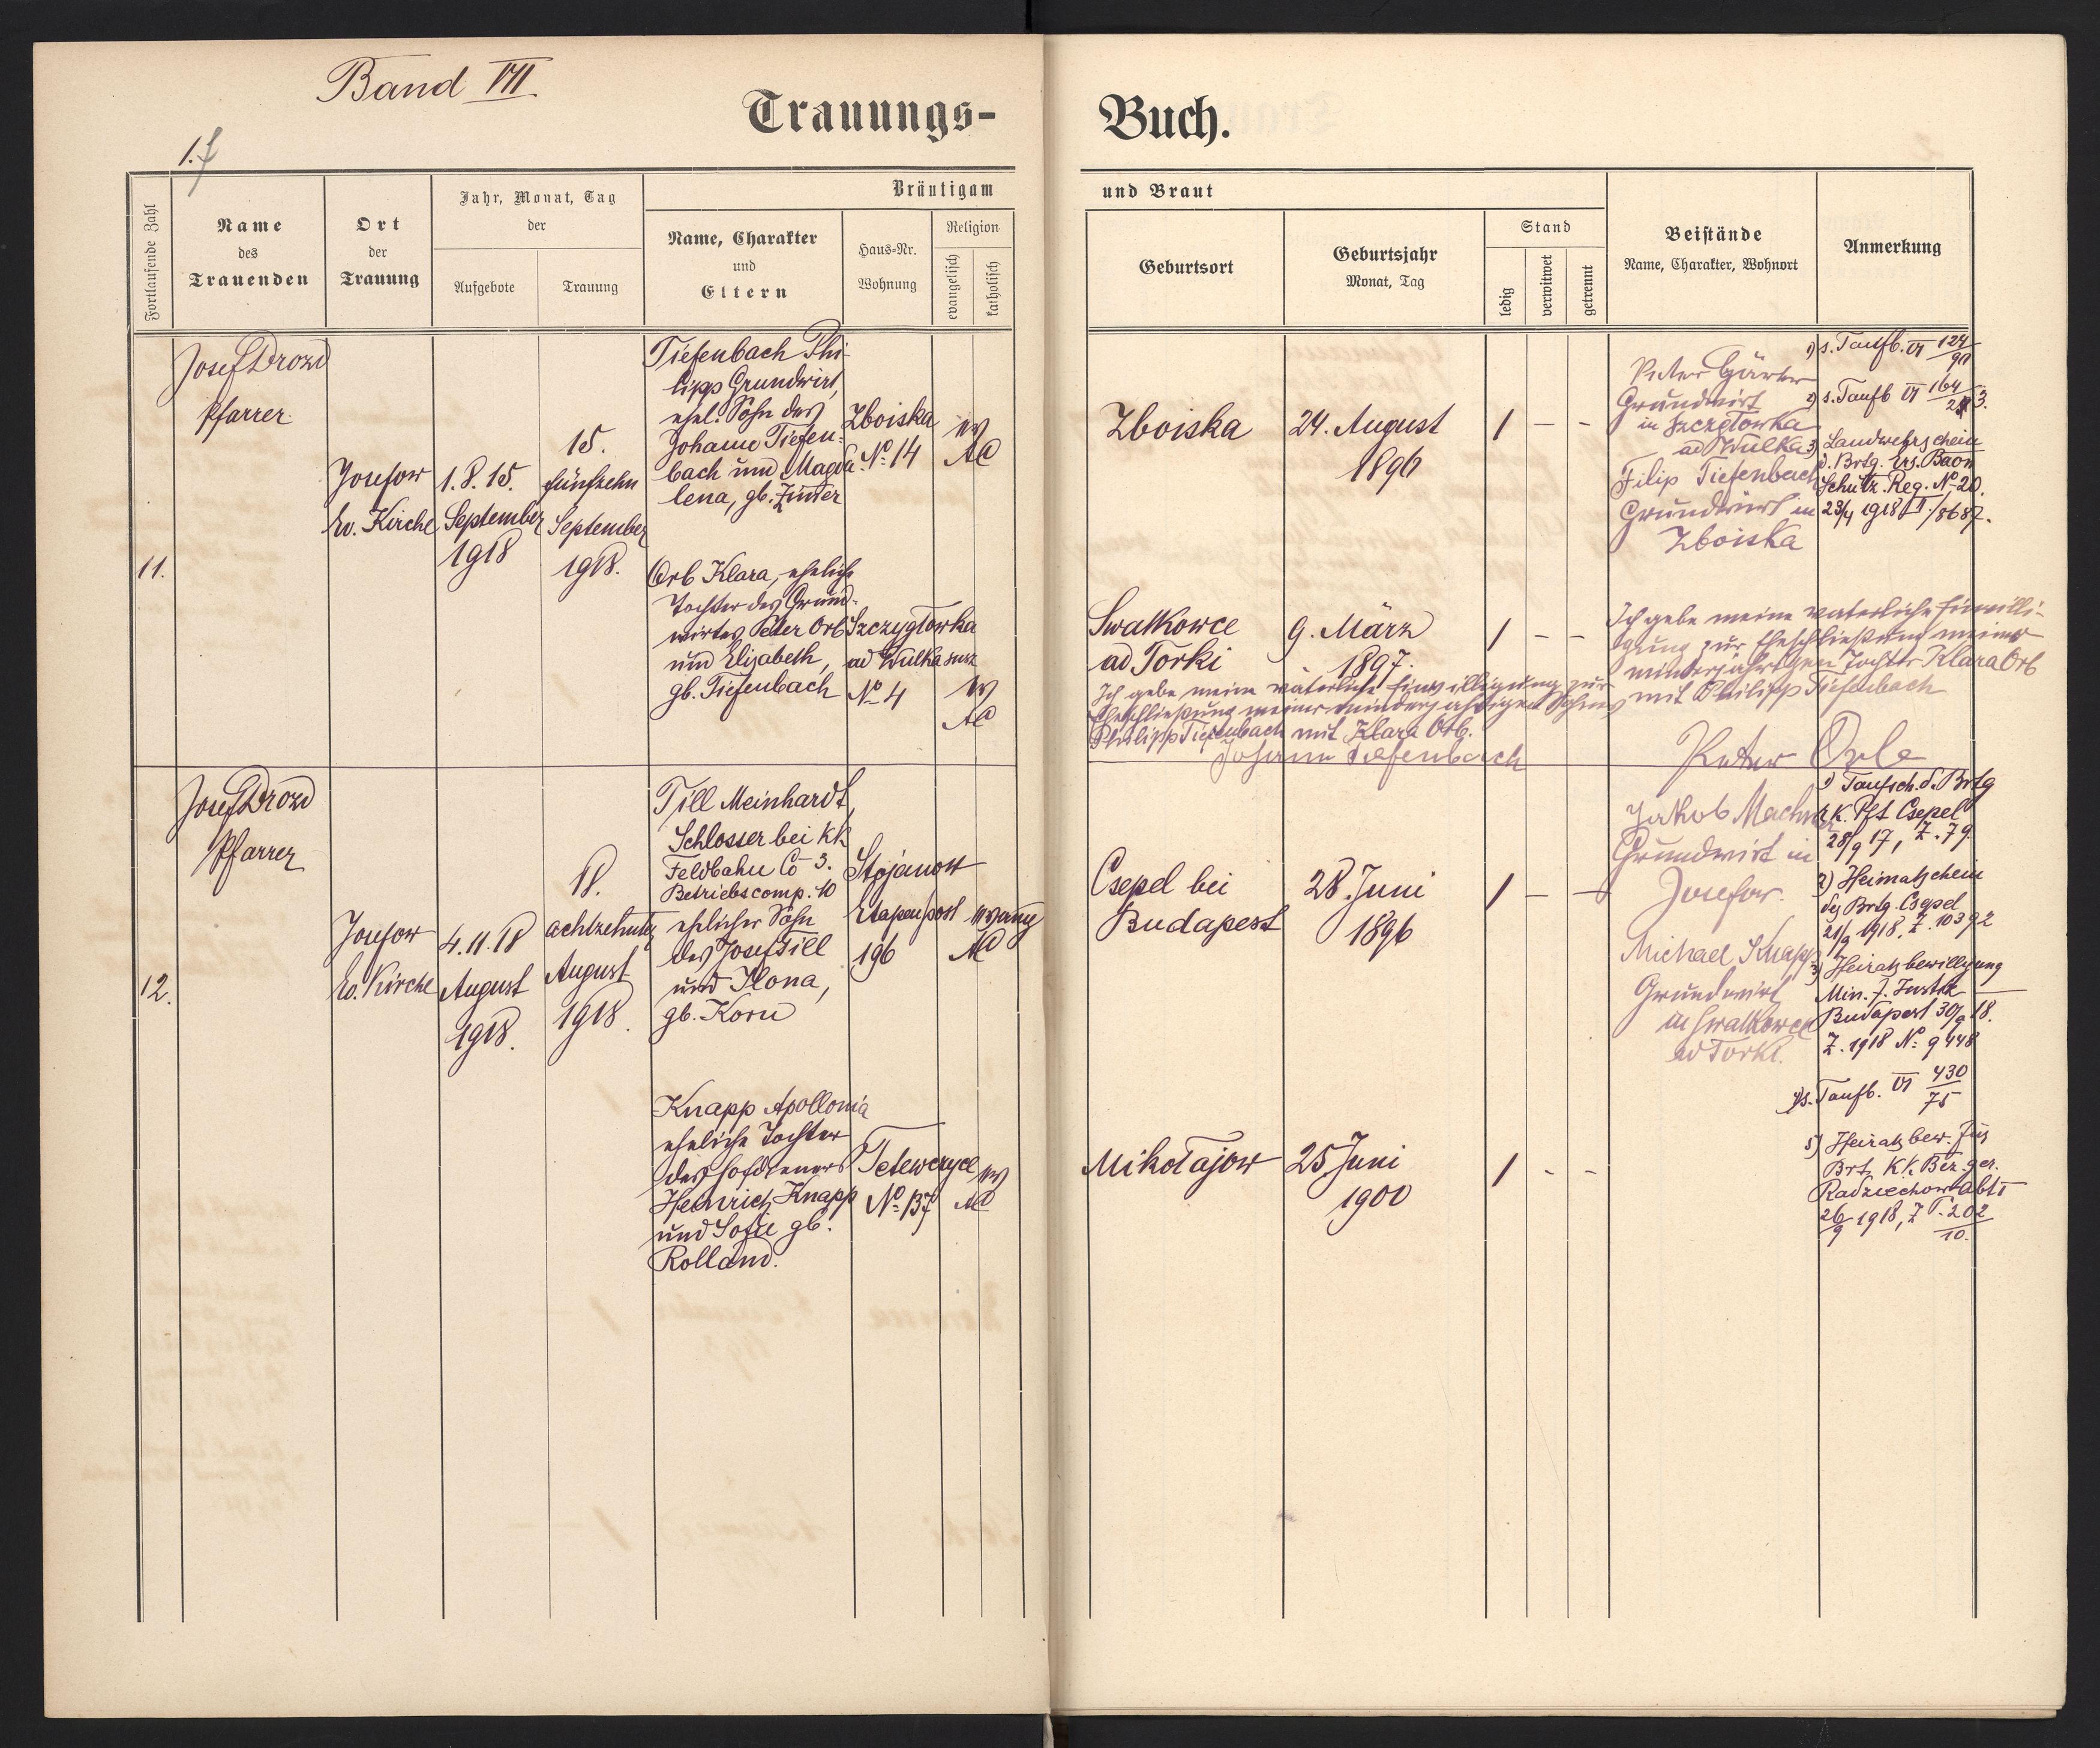 Band VII
Trauungs-
Buch.
1.
Fortlaufende Zahl
Name
des
Trauenden
Ort
der
Trauung
Jahr, Monat, Tag
der
Aufgebote
Trauung
Bräutigam
und Braut
Name, Charakter
und
Eltern
Haus-Nr.
Wohnung
Religion
evangelisch
katholisch
Geburtsort
Geburtsjahr
Monat, Tag
Stand
ledig
verwitwet
getrennt
Beistände
Name, Charakter, Wohnort
Anmerkung
11.
Josef Drozd
Pfarrer
Josefow
Ev. Kirche
1. 8. 15.
September
1918
15.
fünfzehn
September
1918.
Tiefenbach Phi-
lipp Grundwirt,
ehel. Sohn des
Johann Tiefen-
bach und Magda-
lena, gb. Zinter
Zboiska
No. 14
ev
AC
Zboiska
24. August
1896
1 — -
Peter
Grundwirt
in Szczyglowka
ad Wulka
Filip Tiefenbach
Grundwirt in
Zboiska
1) s. Taufb. VI 124/
2) s. Taufb VI 164/
3) Landwehrschein
d. Brtg. Ers. Baon
Schütz. Reg. No 20.
23/4 1918 /8687.
Orb Klara, eheliche
Tochter des Grund-
wirtes Peter Orb
und Elisabeth,
gb. Tiefenbach
Szczyglowka
ad Wulka susz
No 4
ev
AC
Swatkowce
ad Torki
9. März
1897.
1 - -
Ich gebe meine vaterliche Einwilligung zur
Eheschließung meines minderjahrigen Sohnes
Philipp Tiefenbach mit Klara Orb.
Johann Tiefenbach
Ich gebe meine vaterliche Einwilli-
gung zur Eheschließung meiner
minderjahrigen Tochter Klara Orb
mit Philipp Tiefenbach
Peter Orb
12.
Josef Drozd
Pfarrer
Josefow
Ev. Kirche
4. 11. 18
August
1918.
18.
achtzehnten
August
1918.
Till Meinhardt,
Schlosser bei kk
Feldbahn Co 3.
Betriebscomp. 10
ehelicher Sohn
des Josef Till
und Ilona,
gb. Korn
Stojanow
Etapenpost
196
evang
AC
Csepel bei
Budapest
28. Juni
1896
1 — —
Jakob Machner
Grundwirt in
Josefow.
Michael Knapp
Grundwirt
in Swatkowce
ad Torki.
1) Taufsch. d. Brtg
r. k. Pft Csepel
28/9 17, Z. 79.
2) Heimatschein
des Brtg. Csepel
21/9 1918, Z. 10392
3) Heiratsbewilligung
Min. f. Justiz
Budapest 30/9 18.
Z. 1918 No. 9448
4) s. Taufb. VI 430/75
5) Heiratsbew. für
Brt. KK. Bez. ger.
Radziechow Abt I
26/9 1918, Z P. 202/10.
Knapp Apollonia
eheliche Tochter
des Hofdieners
Heinrich Knapp
und Sofie gb.
Rolland.
Tetewczyce
No. 137
ev
AC
Mikołajow
25 Juni
1900
1 - -